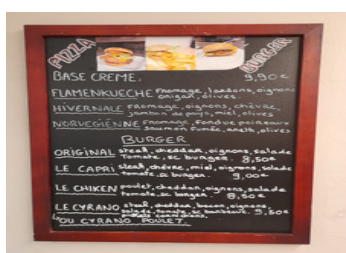 PIZZA
BURGER
BASE CREME. 9,90€
FLAMENKUECHE fromage, lardons, oignons
origan, olives.
HIVERNALE fromage, oignons, chèvre,
jambon de pays, miel, olives
NORVEGIENNE fromage, fondue poireaux
saumon fumée, aneth, olives
BURGER
ORIGINAL steak, cheddar, oignons, salade
Tomate, sc burger. 8,50€
LE CAPRI steak, chèvre, miel, oignons, salade
tomate, sc burger. 9,00€
LE CHIKEN poulet, cheddar, oignons, salade
Tomate, sc burger. 8,50€
LE CYRANO steak, cheddar, bacon, oignons,
salade, tomate, sc barbecue. 9,50€
OU CYRANO POULET.